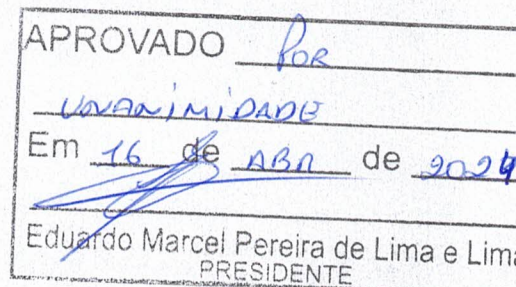 APROVADO POR
UNANIMIDADE
Em 16 de ABR de 2024
Eduardo Marcel Pereira de Lima e Lima
PRESIDENTE